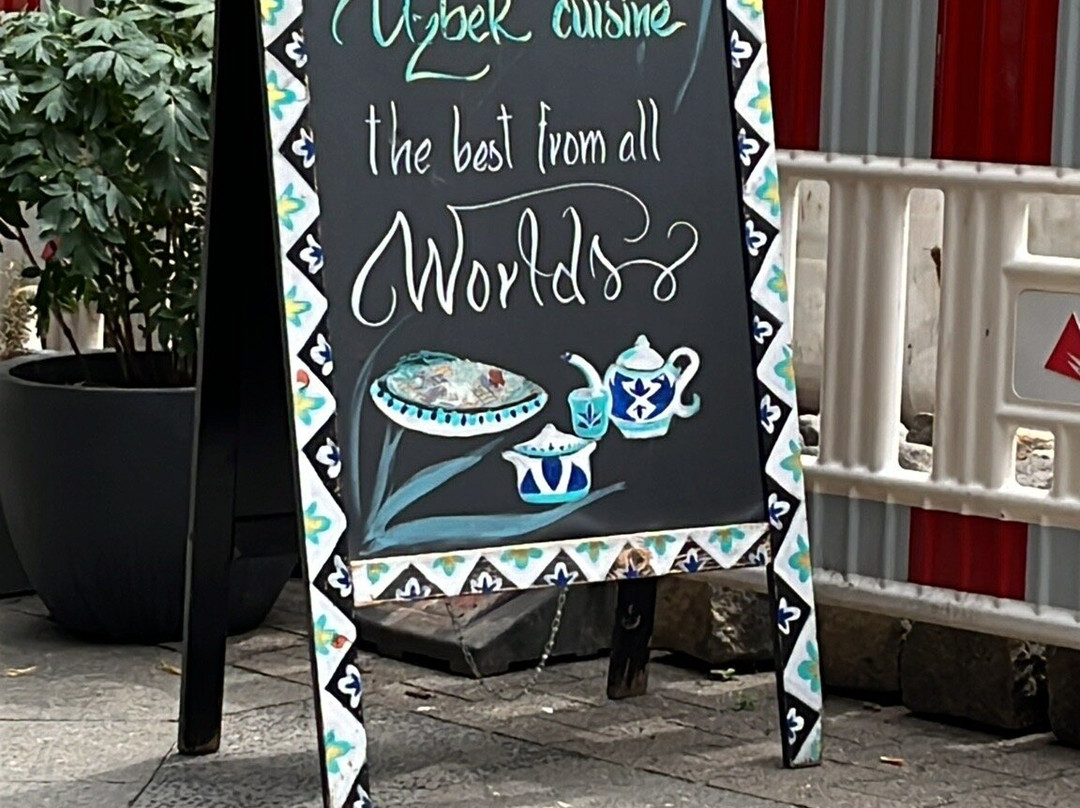 Uzbek cuisine
the best from all
Worlds